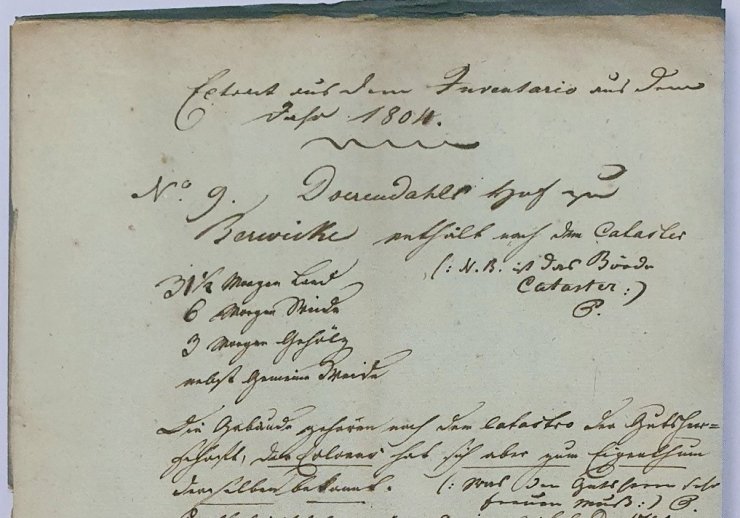 Extract aus dem Inventario aus dem
Jahr 1804.
No. 9. Doerendahls Hof zu
Berwicke enthält nach dem Cataster
(: N.B. ist das Börde
Cataster :)
P.
31 1/2 Morgen Land
6 Morgen Weide
3 Morgen Gehölz
nebst Gemeine Weide
Die Gebäude gehören nach dem Catastro der Gutsherr=
schaft, der Colonus hat sich aber zum Eigenthum
derselben bekannt. (: was den Gutsherrn sehr
freuen muß :) P.